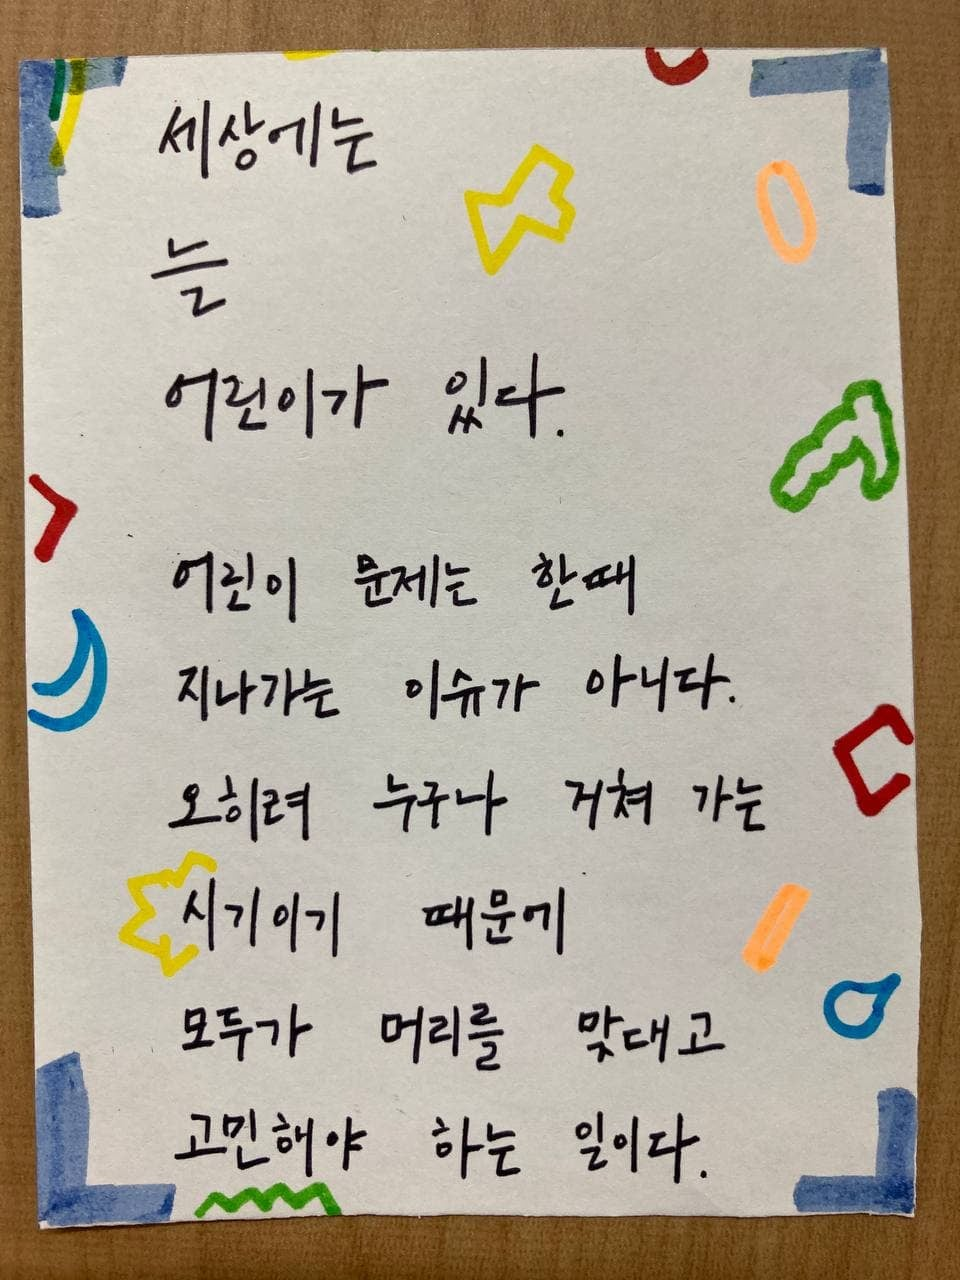 세상에는
늘
어린이가 있다.
어린이 문제는 한때
지나가는 이슈가 아니다.
오히려 누구나 거쳐 가는
시기이기 때문에
모두가 머리를 맞대고
고민해야 하는 일이다.